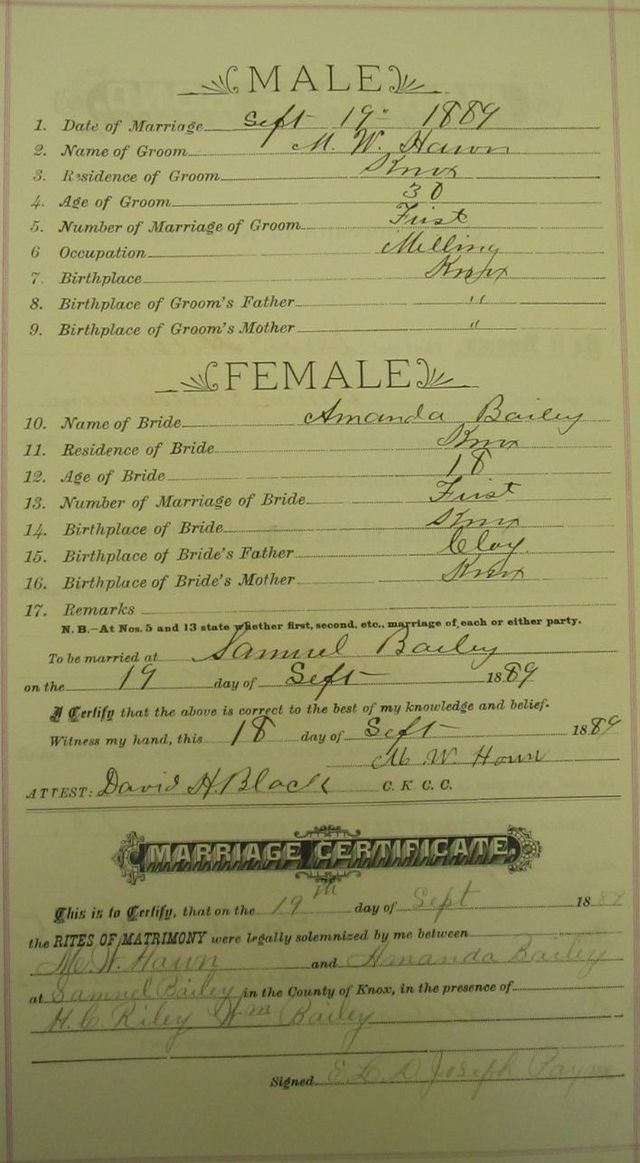 MALE
1. Date of Marriage Sept 19" 1889
2. Name of Groom M. W. Hawn
3. Residence of Groom Knox
4. Age of Groom 30
5. Number of Marriage of Groom First
6 Occupation Milling
7. Birthplace Knox
8. Birthplace of Groom's Father "
9. Birthplace of Groom's Mother "
FEMALE
10. Name of Bride Amanda Bailey
11. Residence of Bride Knox
12. Age of Bride 18
13. Number of Marriage of Bride First
14. Birthplace of Bride Knox
15. Birthplace of Bride's Father Clay
16. Birthplace of Bride's Mother Knox
17. Remarks
N. B.—At Nos. 5 and 13 state whether first, second, etc., marriage of each or either party.
To be married at Samuel Bailey
on the 19 day of Sept 1889
I Certify that the above is correct to the best of my knowledge and belief.
Witness my hand, this 18 day of Sept 1889
M. W. Hawn
ATTEST: David H. Black C. K. C. C.
MARRIAGE CERTIFICATE.
This is to Certify, that on the 19th day of Sept 1889
the RITES OF MATRIMONY were legally solemnized by me between
M. W. Hawn and Amanda Bailey
at Samuel Bailey in the County of Knox, in the presence of
H. C. Riley Wm Bailey
Signed Joseph Payne